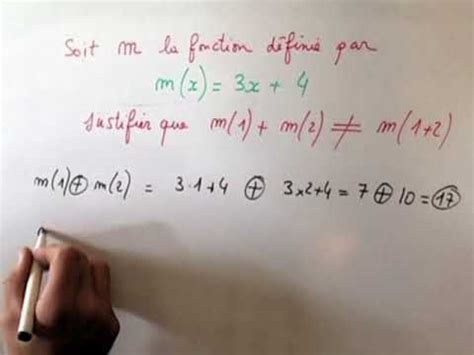 Soit m la fonction définie par
m(x) = 3x + 4
Justifier que m(1) + m(2) ≠ m(1+2)
m(1) ⊕ m(2) = 3·1+4 ⊕ 3×2+4 = 7 ⊕ 10 = 17